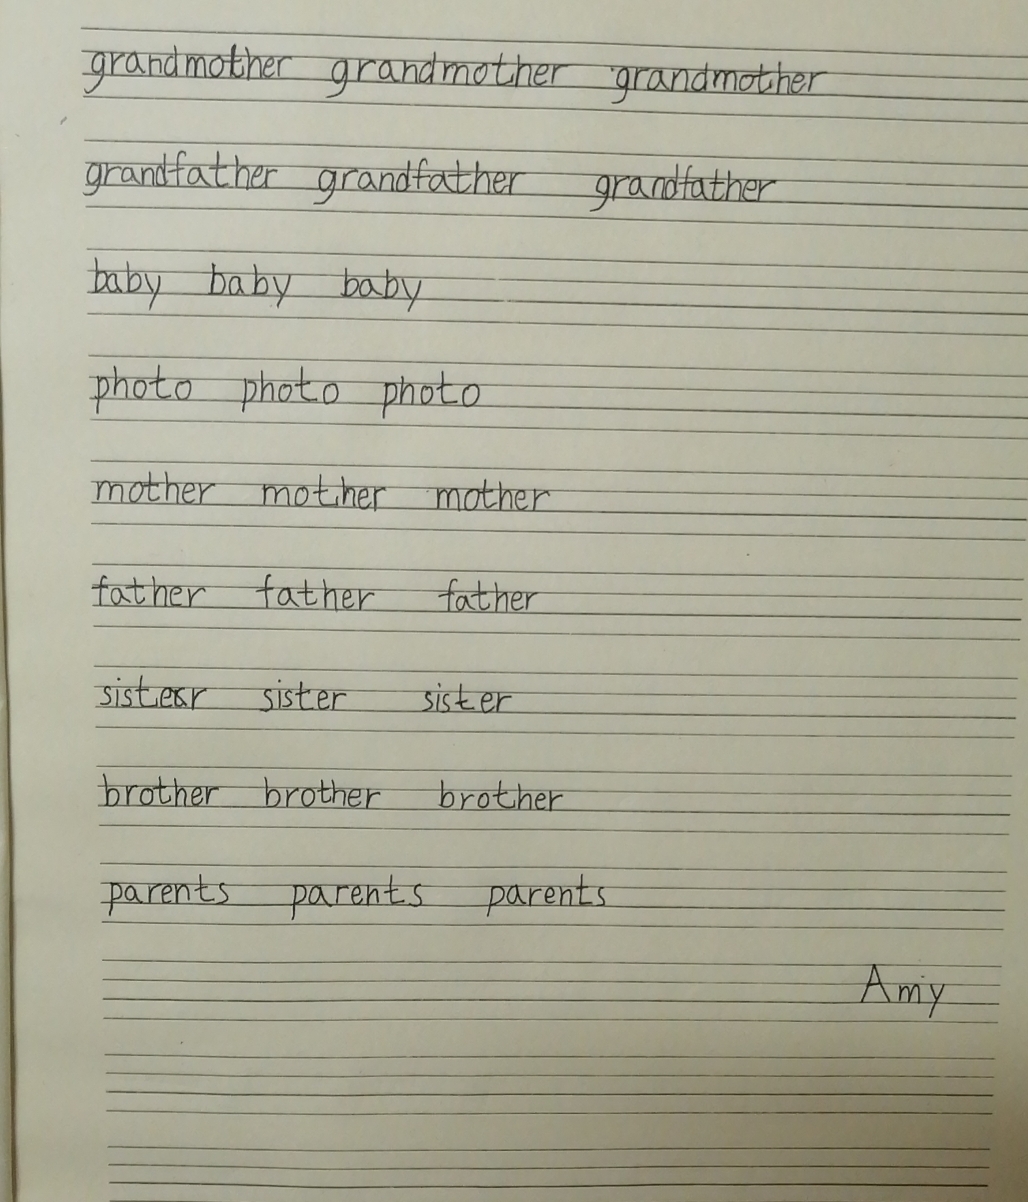 grandmother grandmother grandmother
grandfather grandfather grandfather
baby baby baby
photo photo photo
mother mother mother
father father father
sister sister
brother brother brother
parents parents parents
Amy